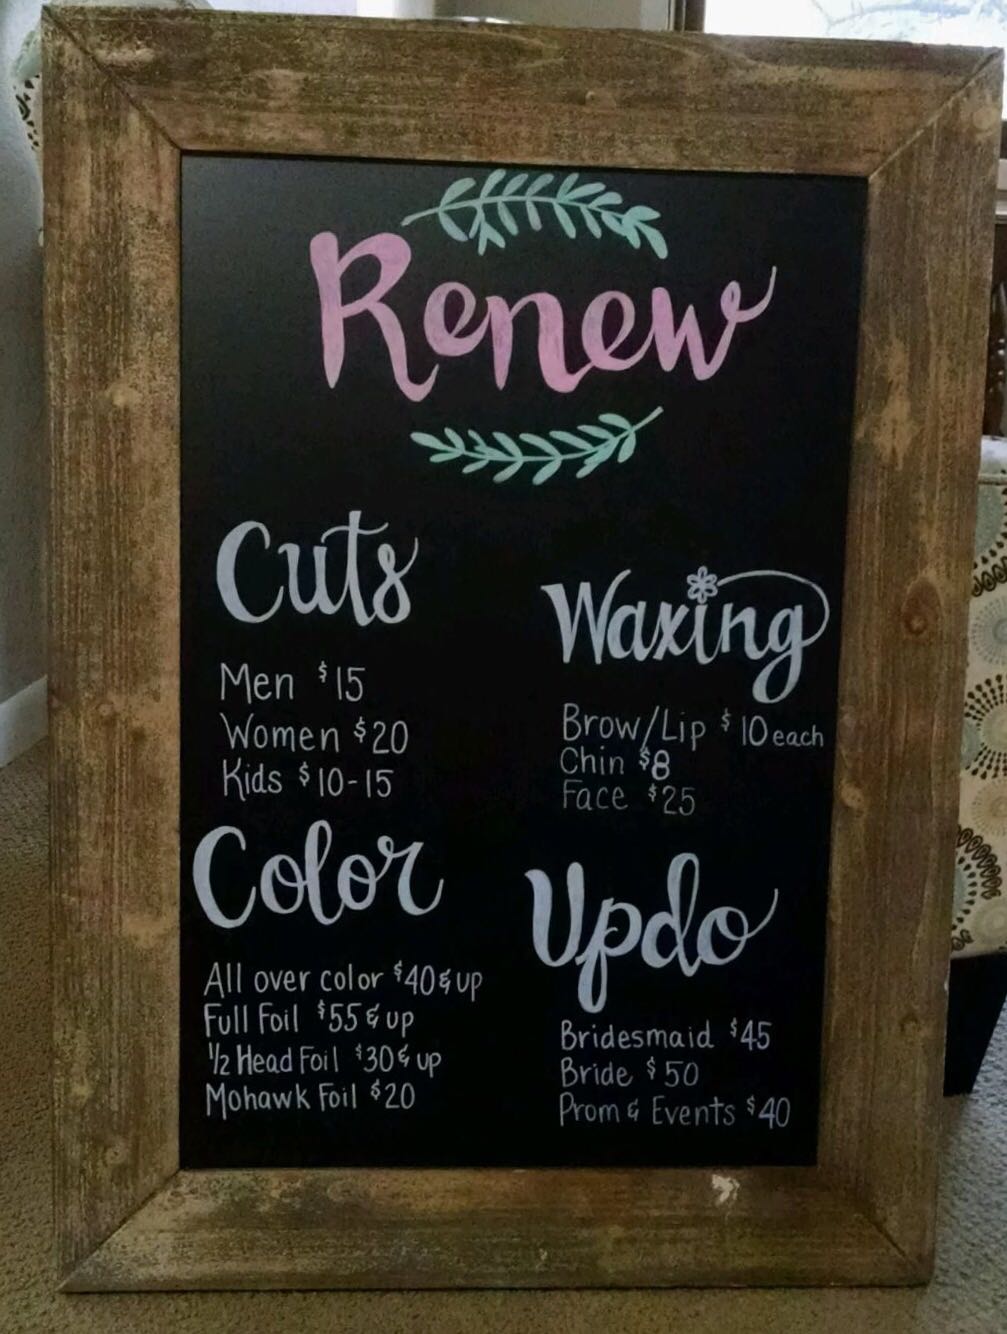 Renew
Cuts
Men $15
Women $20
Kids $10-15
Color
All over color $40 & up
Full Foil $55 & up
½ Head Foil $30 & up
Mohawk Foil $20
Waxing
Brow/Lip $10 each
Chin $8
Face $25
Updo
Bridesmaid $45
Bride $50
Prom & Events $40